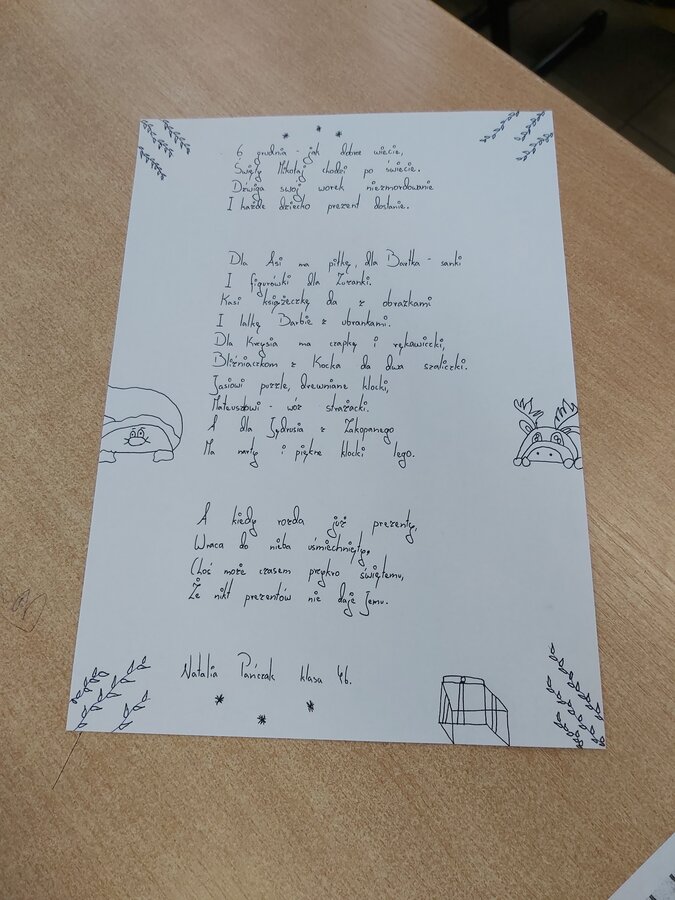 6 grudnia - jak dobrze wiecie,
Święty Mikołaj chodzi po świecie.
Dźwiga swój worek niezmordowanie
I każde dziecko prezent dostanie.
Dla Asi ma piłkę, dla Bartka - sanki
I figurówki dla Zuzanki.
Kasi książeczkę da z obrazkami
I lalkę Barbie z ubrankami.
Dla Krzysia ma czapkę i rękawiczki,
Bliźniaczkom z Kocka da dwa szaliczki.
Jasiowi puzzle, drewniane klocki,
Mateuszowi - wóz strażacki.
A dla Jędrusia z Zakopanego
Ma narty i piękne klocki lego.
A kiedy rozda już prezenty,
Wraca do nieba uśmiechnięty,
Choć może czasem przykro świętemu,
Że nikt prezentów nie daje Jemu.
Natalia Pańczak klasa 4b.